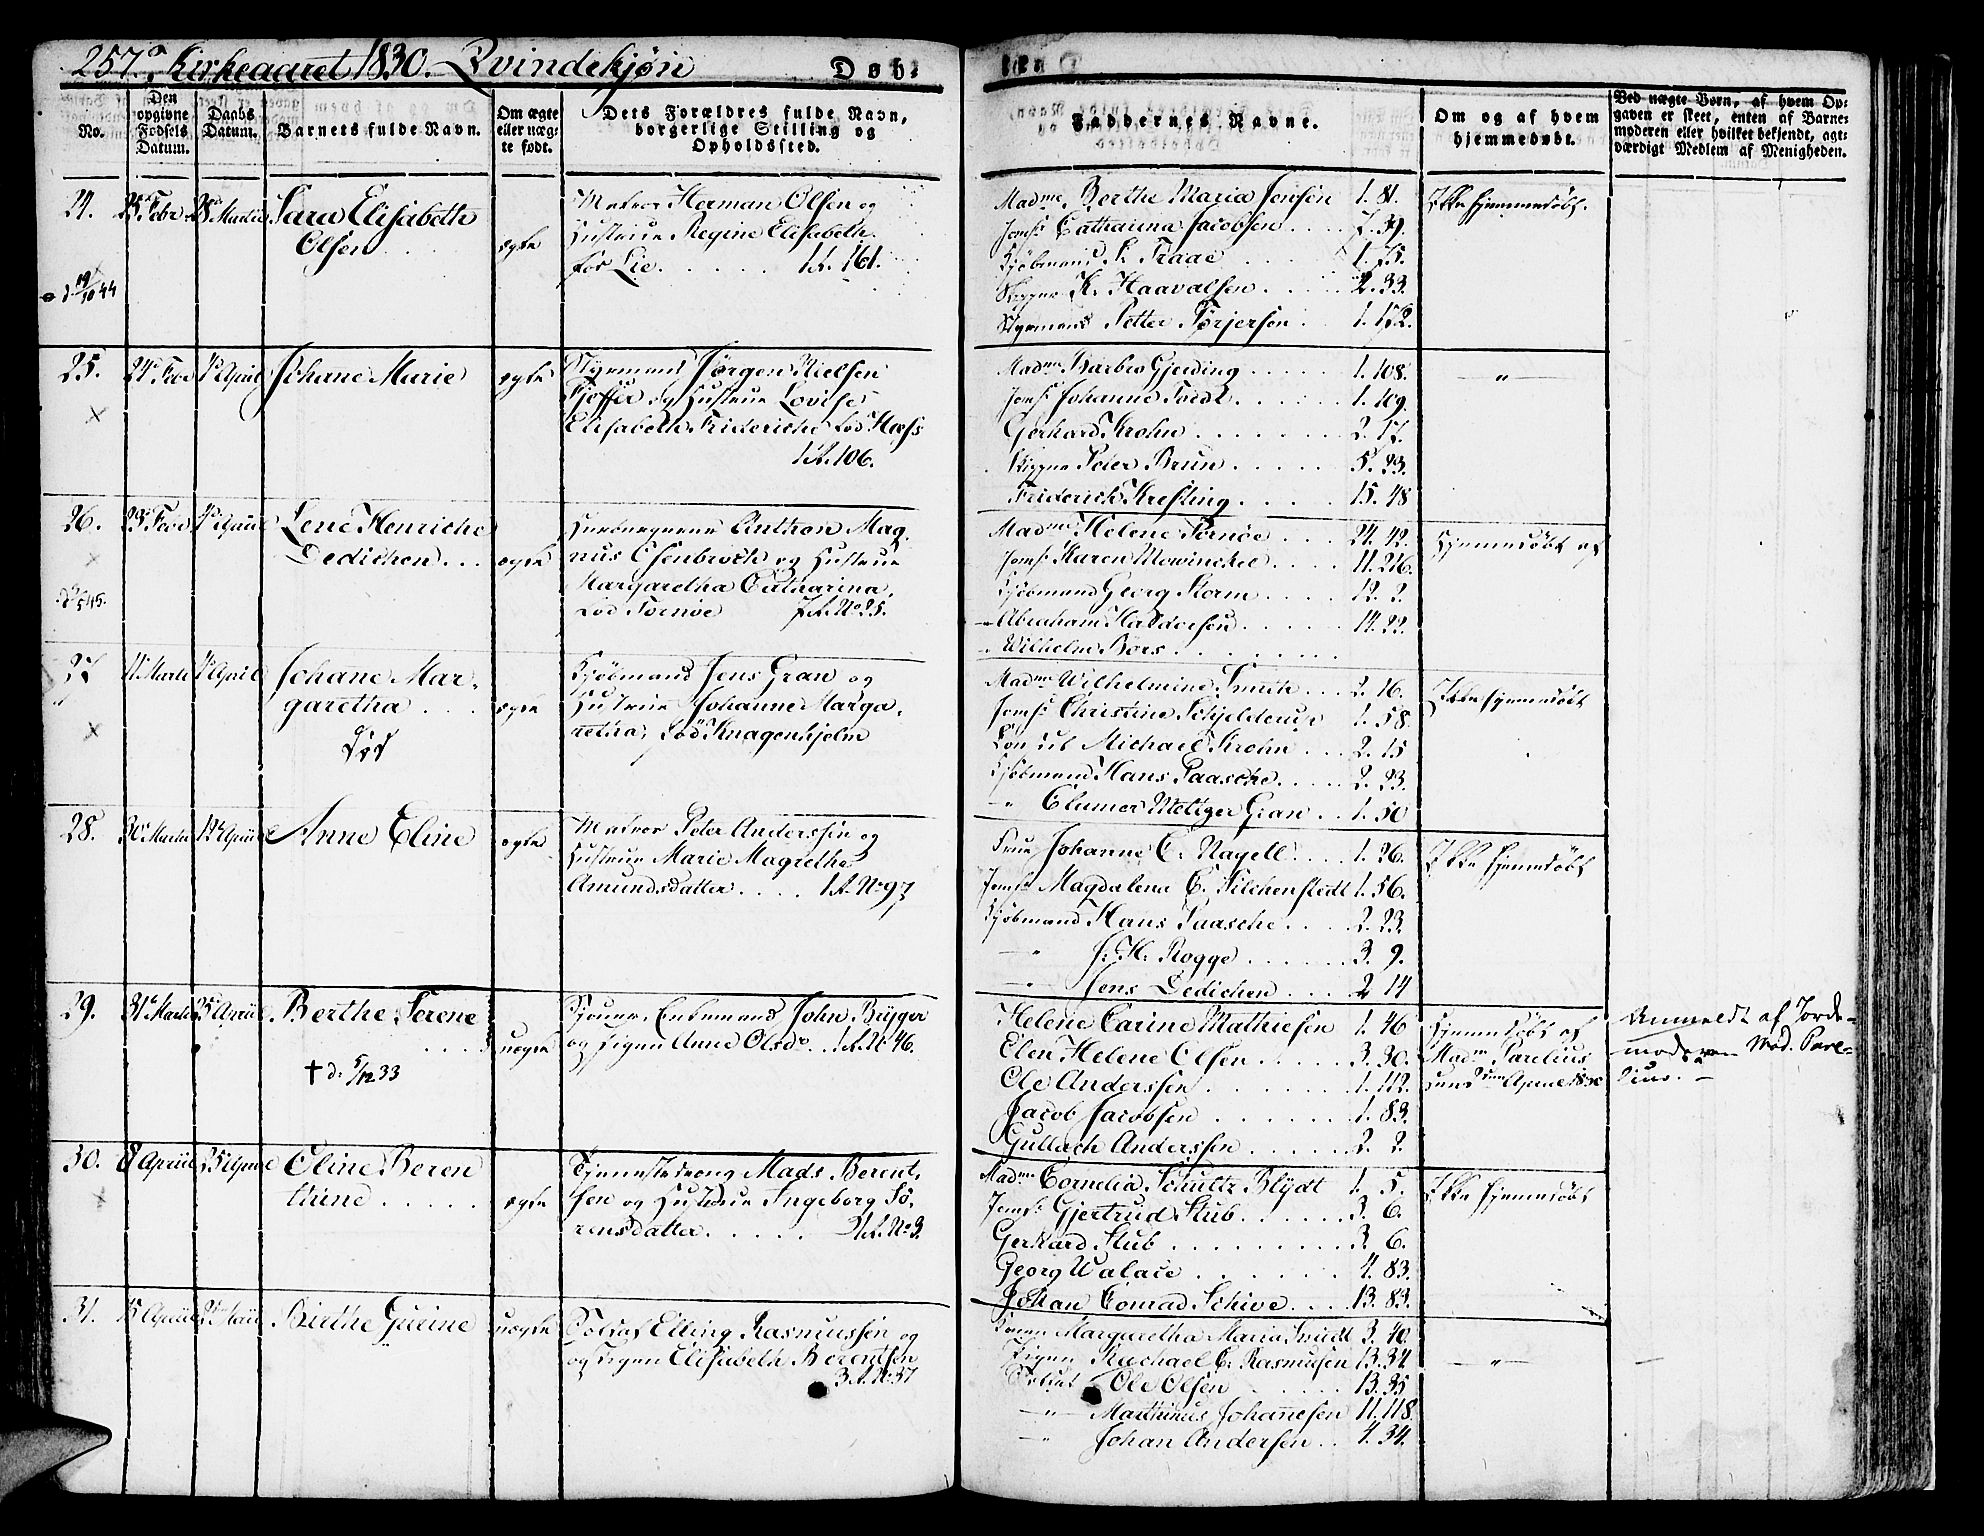 257.a Kirkeaaret 1830. Qvindekjøn
Døb.
No.
Den opgivne Fødsels Datum.
Daabs Datum.
Barnets fulde Navn.
Om ægte eller uæg-
te født.
Dets Forældres fulde Navn,
borgerlige Stilling og
Opholdssted.
Faddernes Navne.
Om og af hvem
hjemmedøbt.
Ved uægte Børn, af hvem Op-
gaven er skeet, enten af Barne-
moderen eller hvilket bekjendt, agt-
værdigt Medlem af Menigheden.
24.
Febr.
28 Martii
Sara Elisabeth
Olsen
ægte
Matros Herman Olsen og
Hustrue Regine Elisabeth
fød Lie . . . . . 1.R. 161.
Madme Berthe Maria Jensen 1. 81.
Jomfr Catharina Jacobsen . . . . 7. 39.
Kjøbmand Traae 1. 75.
Skipper K. Haavalsen . . . . . 2. 33.
Styrmand Petter Tørjersen . 1. 172.
Ikke hjemmedøbt.
25.
24 Febr
April
Johane Marie
ægte
Styrmand Jørgen Nielsen
og Hustrue Lovise
Elisabeth Friderieke fød Hæfs
1.R. 106.
Madme Barbro Gjerding . . . . 1. 108.
Jomfr Johanne Foedt . . . . . 1. 109.
Gerhard Krohn . . . . . . . 2. 17.
Skipper Peter Brun . . . . . 5. 23.
Friderich Kresting . . . . 15. 48
— " —
26.
23 Febr
April
Lene Henriche
Dedichen . . .
ægte
Anthon Mag
nus Isenbroch og Hustrue
Margaretha Catharina
fød Tornøe 7.R. No 25.
Madme Helene Tornøe . . . 24. 42.
Jomfr Karen Mowinckel . . . . 11. 226.
Kjøbmand Georg Storm . . . . 12. 2.
Abraham Haldorsen . . . . . 14. 22.
Wilhelm Børs . . . . . . . .
Hjemmedøbt af
27
11 Martii
April
Johane Mar-
garetha . . .
død
ægte
Kjøbmand Jens Gran og
Hustrue Johanne Marga-
retha, fød Knagenhjelm
Madme Wilhelmine Smith . . . 2. 16.
Jomfr Christine Schjelderup 1. 58.
Michael Krohn . . . 2. 15
Kjøbmand Hans Paasche . . . . . 2. 23.
" Clumer Meltzer Gran . . 1. 50
Ikke hjemmedøbt
28.
30 Martii
April
Anne Eline
ægte
Matros Peter Anderssen og
Hustrue Marie Magrethe
Amundsdatter . . . . 1.R. No 97
Frue Johanne C. Nagell . . . . 1. 26.
Jomfr Magdalena C. Filchenstedt 1. 56.
Kjøbmand Hans Paasche . . . . 2. 23.
— " J: H: Rogge . . . . . . 3. 9.
— " Jens Dedichen . . . 2 14
Ikke hjemmedøbt
29.
31 Martii
25 April
Berthe Serene
† d: 5/12 33
uægte
Enkemand John Bügger
og Pigen Anne Olsdr. . . 1.R. No 46.
Helene Carine Mathiesen 1. 46
Elen Helene Olsen . . . . . 3. 30.
Ole Anderssen . . . . . . 1. 112.
Jacob Jacobsen . . . . . . 1. 83.
Gullach Anderssen . . . . . 2. 2.
Hjemmedøbt af
Madm Parelius
April 1830
Anmeldt af Jorde-
moderen Mad. Pare-
lius. —
30.
8 April
25 April
Eline Beren
thine . . . . .
ægte
Tjenestedreng Mads Berent-
sen og Hustrue Ingeborg Sø-
rensdatter . . . . . 21.R. No 3.
Madme Cornelia Schultz Blÿdt 1. 5.
Jomfr Gjertrud Stub . . . . . . 3. 6.
Gerhard Stub . . . . . . . . . 3. 6.
Georg Walace . . . . . . 4. 83.
Johan Conrad Schive . . . . 13. 83.
Ikke hjemmedøbt
31.
15 April
Birthe Gurine
uægte
Soldat Elling Rasmussen og
og Pigen Elisabeth Berentsen
3.R. No 37
Konen Margaretha Maria Smidt 3. 40.
Pigen Rachael C. Rasmusen 13. 34
Soldat Ole Olsen 13. 35
— " — Marthinus Johannesen 11. 118.
— " Johan Andersen . . 4. 34.
— " —
—